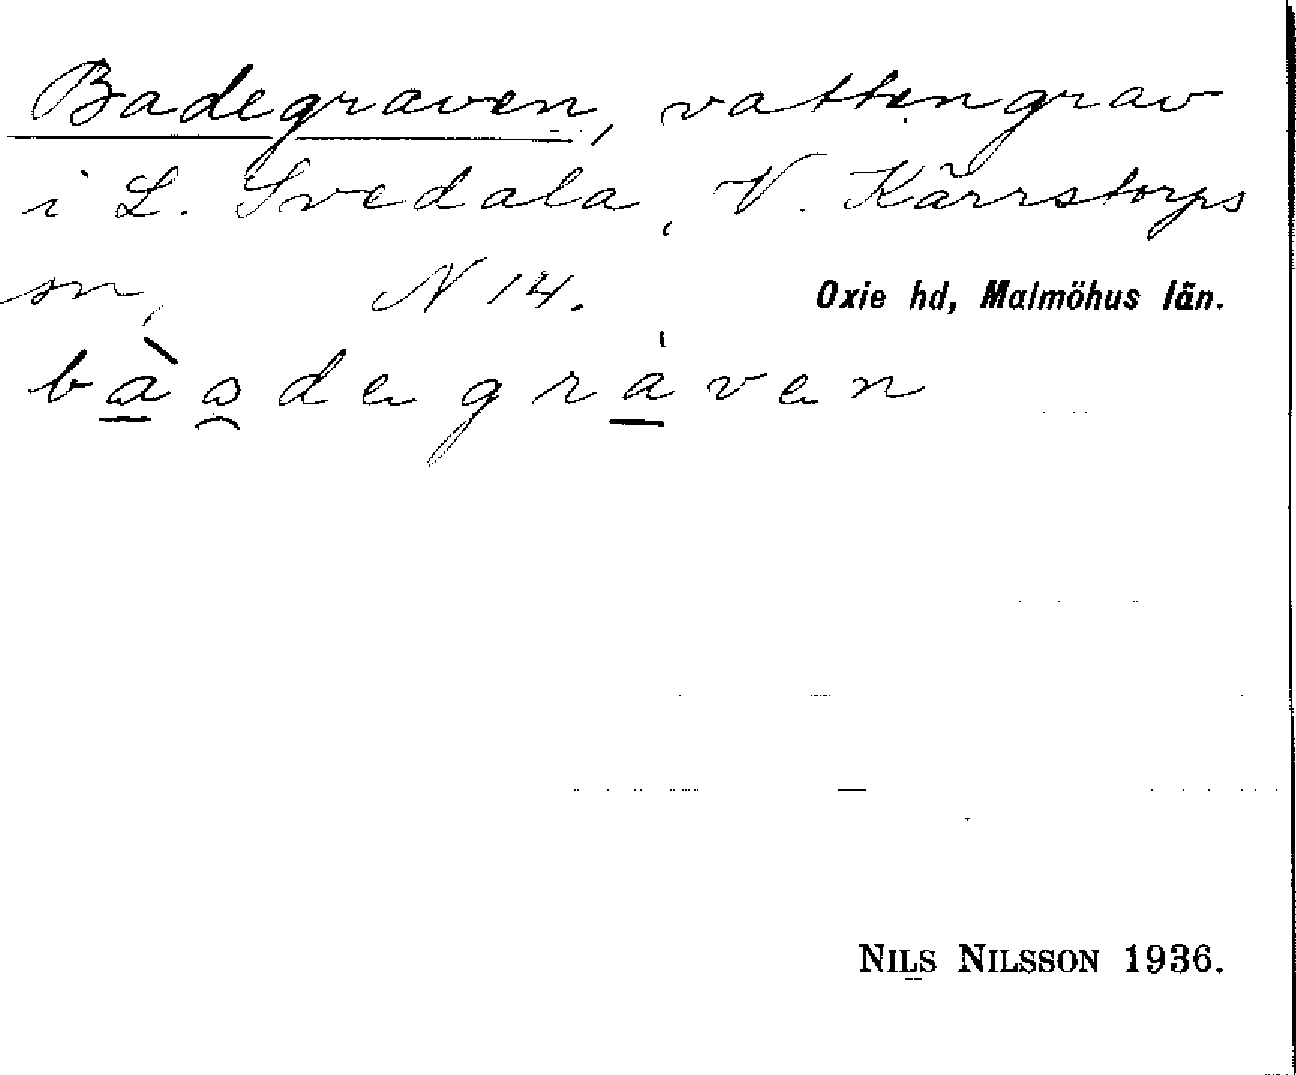 Badegraven, vattengrav
i L. Svedala, V. Kärrstorps
sn, N 14. Oxie hd, Malmöhus län.
bàadegràven
NILS NILSSON 1936.